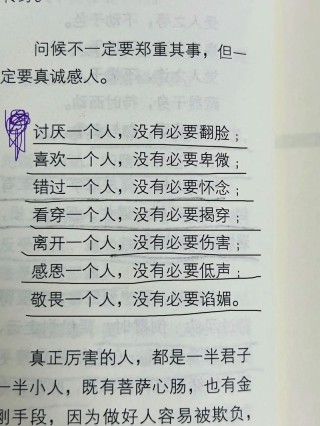 问候不一定要郑重其事，但一
定要真诚感人。
讨厌一个人，没有必要翻脸；
喜欢一个人，没有必要卑微；
错过一个人，没有必要怀念；
看穿一个人，没有必要揭穿；
离开一个人，没有必要伤害；
感恩一个人，没有必要低声；
敬畏一个人，没有必要谄媚。
真正厉害的人，都是一半君子
一半小人，既有菩萨心肠，也有金
刚手段，因为做好人容易被欺负，